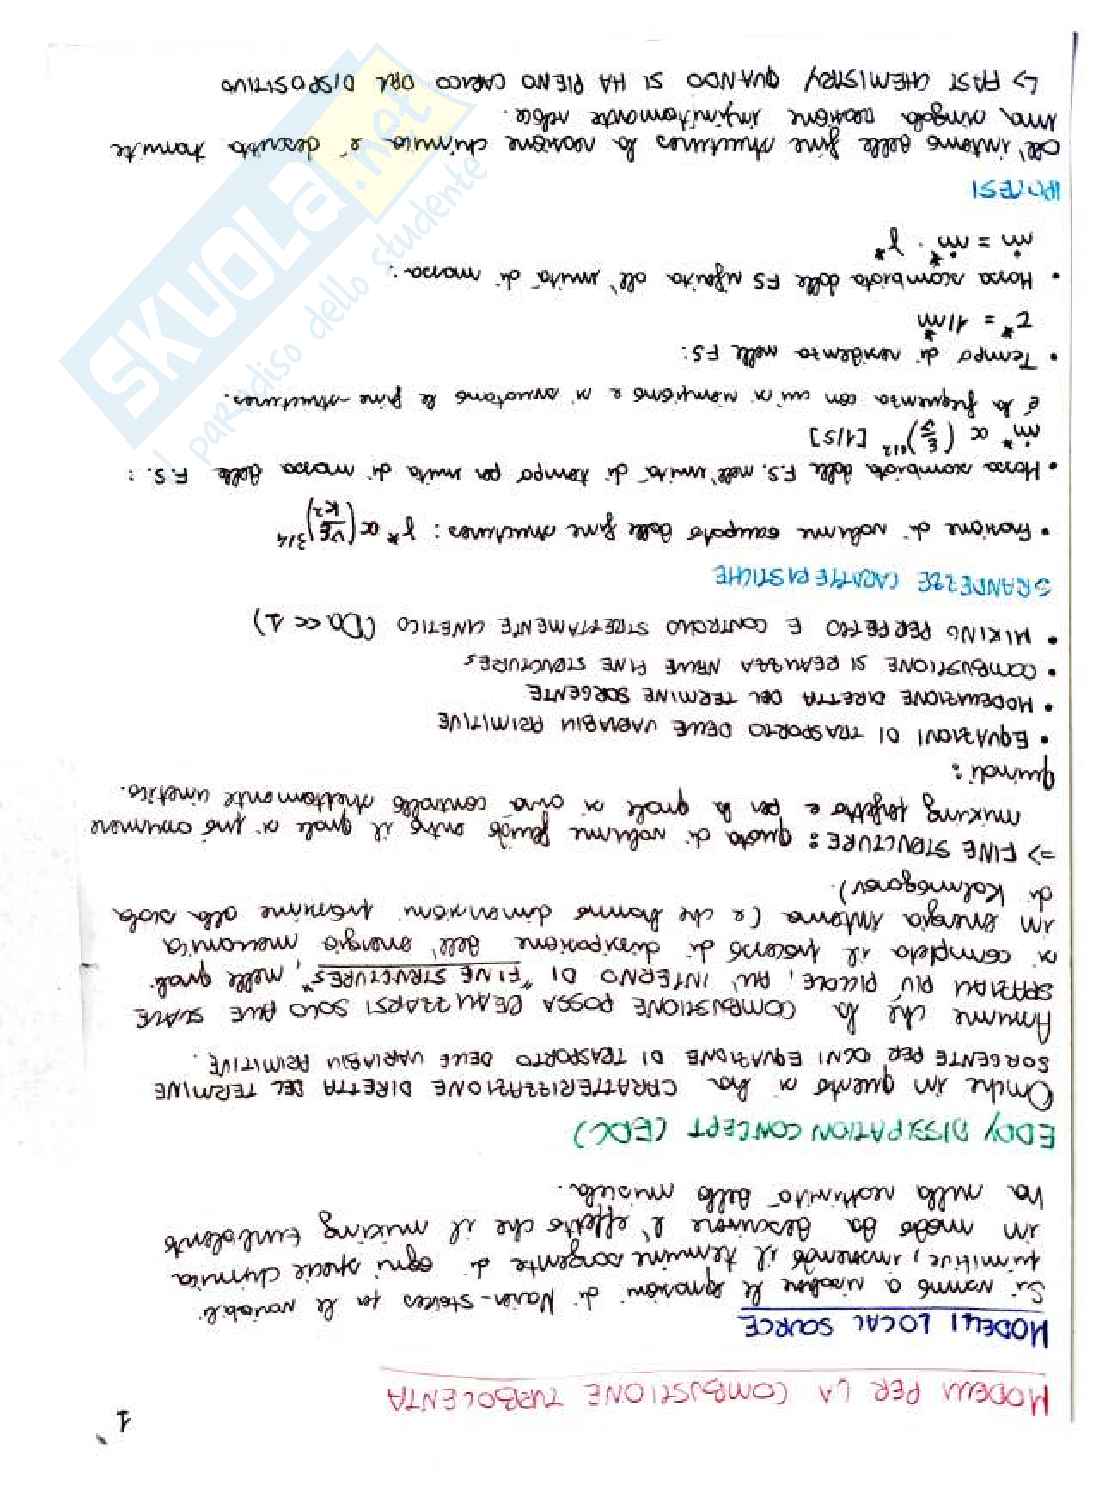 1
MODELLI PER LA COMBUSTIONE TURBOLENTA
MODELLI LOCAL SOURCE
Si vanno a risolvere le equazioni di Navier-Stokes per le variabili
primitive, inserendo il termine sorgente di ogni specie chimica
in modo da descrivere l'effetto che il mixing turbolento
ha sulla reattività della miscela.
EDDY DISSIPATION CONCEPT (EDC)
Anche in questo si ha CARATTERIZZAZIONE DIRETTA DEL TERMINE
SORGENTE PER OGNI EQUAZIONE DI TRASPORTO DELLE VARIABILI PRIMITIVE.
Assume che la COMBUSTIONE POSSA REALIZZARSI SOLO ALLE SCALE
SPAZIALI PIÙ PICCOLE, ALL' INTERNO DI "FINE STRUCTURES", nelle quali
si completa il processo di dissipazione dell'energia meccanica
in energia interna (e che hanno dimensioni prossime alla scala
di Kolmogorov).
=> FINE STRUCTURE: quota di volume fluido entro il quale si può assumere
mixing perfetto e per la quale si avrà controllo strettamente cinetico.
Quindi:
• EQUAZIONI DI TRASPORTO DELLE VARIABILI PRIMITIVE
• MODELLAZIONE DIRETTA DEL TERMINE SORGENTE
• COMBUSTIONE SI REALIZZA NELLE FINE STRUCTURES
• MIXING PERFETTO E CONTROLLO STRETTAMENTE CINETICO (Da << 1)
GRANDEZZE CARATTERISTICHE
• Frazione di volume occupato dalle fine structures: γ* ∝ (νε/k²)^3/4
• Massa scambiata dalle F.S. nell'unità di tempo per unità di massa delle F.S.:
ṁ* ∝ (ε/ν)^1/2 [1/s]
è la frequenza con cui si riempiono e si svuotano le fine-structures.
• Tempo di residenza nelle FS:
τ* = 1/ṁ*
• Massa scambiata dalle FS riferita all'unità di massa:
ṁ = ṁ* · γ*
IPOTESI
All'interno delle fine structures la reazione chimica è descritta tramite
una singola reazione infinitamente veloce.
↳ FAST CHEMISTRY QUANDO SI HA PIENO CARICO DEL DISPOSITIVO
SKUOLA.net
il paradiso dello studente